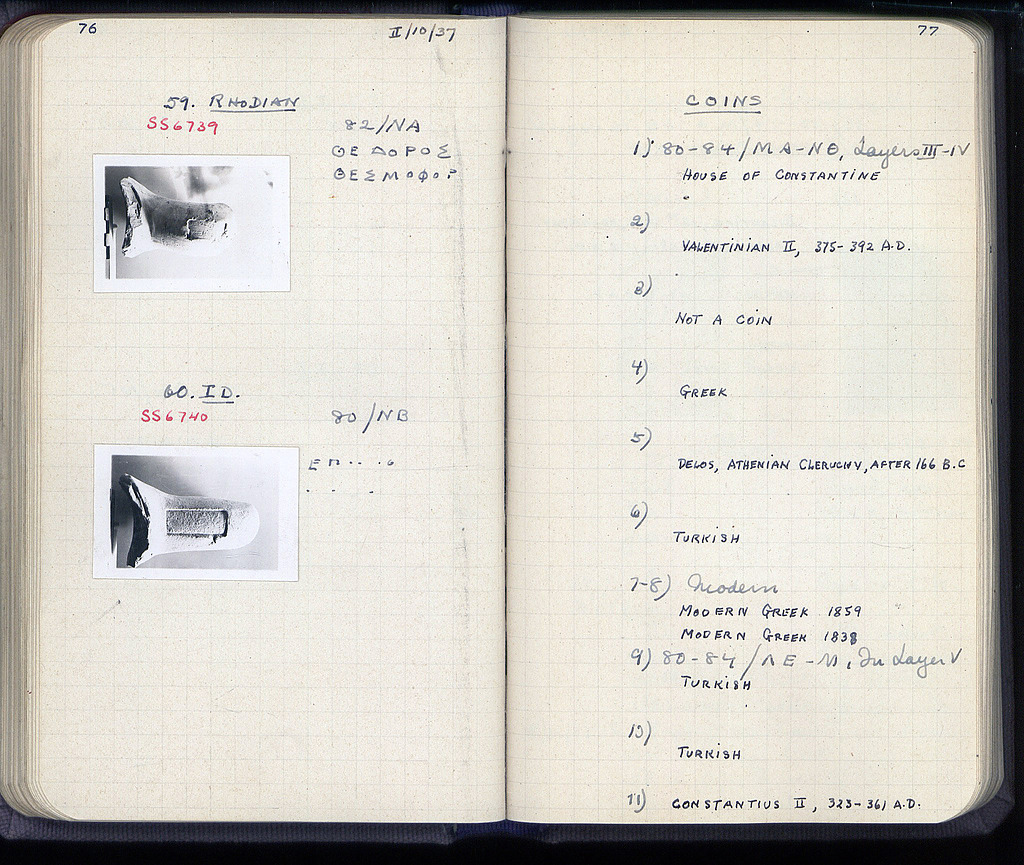 76
II/10/37
59. RHODIAN
SS6739
82/NA
ΘΕΔΟΡΟΣ
ΘΕΣΜΟΦΟΡ
60. ID.
SS6740
80/NB
ΕΠ
77
COINS
1) 80-84/MA-NΘ, Layers III-IV
HOUSE OF CONSTANTINE
2)
VALENTINIAN II, 375-392 A.D.
3)
NOT A COIN
4)
GREEK
5)
DELOS, ATHENIAN CLERUCHY, AFTER 166 B.C
6)
TURKISH
7-8) Modern
MODERN GREEK 1859
MODERN GREEK 1838
9) 80-84/ΛΕ-Μ, In Layer V
TURKISH
10)
TURKISH
11) CONSTANTIUS II, 323-361 A.D.